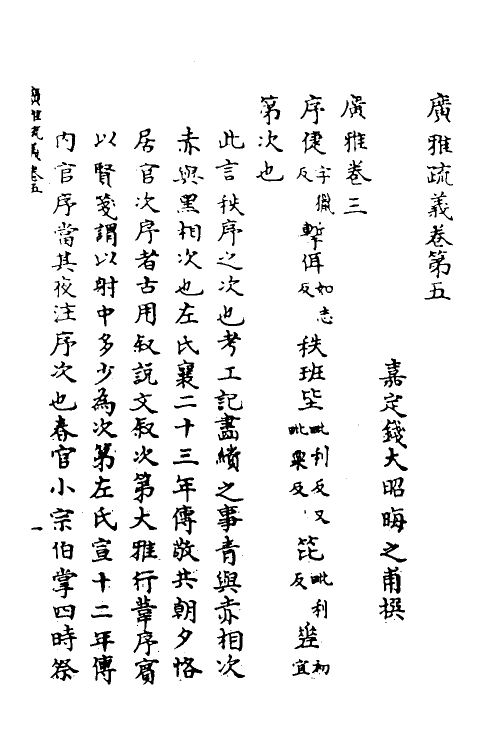 廣雅疏義卷第五
嘉定錢大昭晦之甫撰
廣雅卷三
序倢子獵反擊佴如志反秩班坒毗利反又毗栗反笓毗利反㽅初宜
第次也
此言秩序之次也考工記畫繢之事青與赤相次
赤與黑相次也左氏襄二十三年傳敬共朝夕恪
居官次序者古用叙說文叙次第大雅行葦序賓
以賢箋謂以射中多少為次第左氏宣十二年傳
內官序當其夜注序次也春官小宗伯掌四時祭
廣雅疏義卷五
一